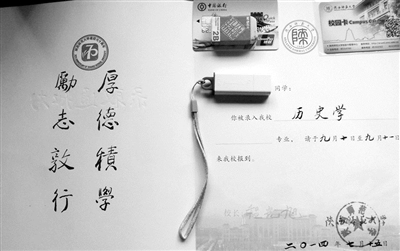 厚德積學
勵志敦行
中国银行
校园卡 Campus Card
同学：
你被录入我校 历史学
专业，请于九月十日至九月十一
来我校报到。
校长
陕西师范大学
二〇一四年七月十五日